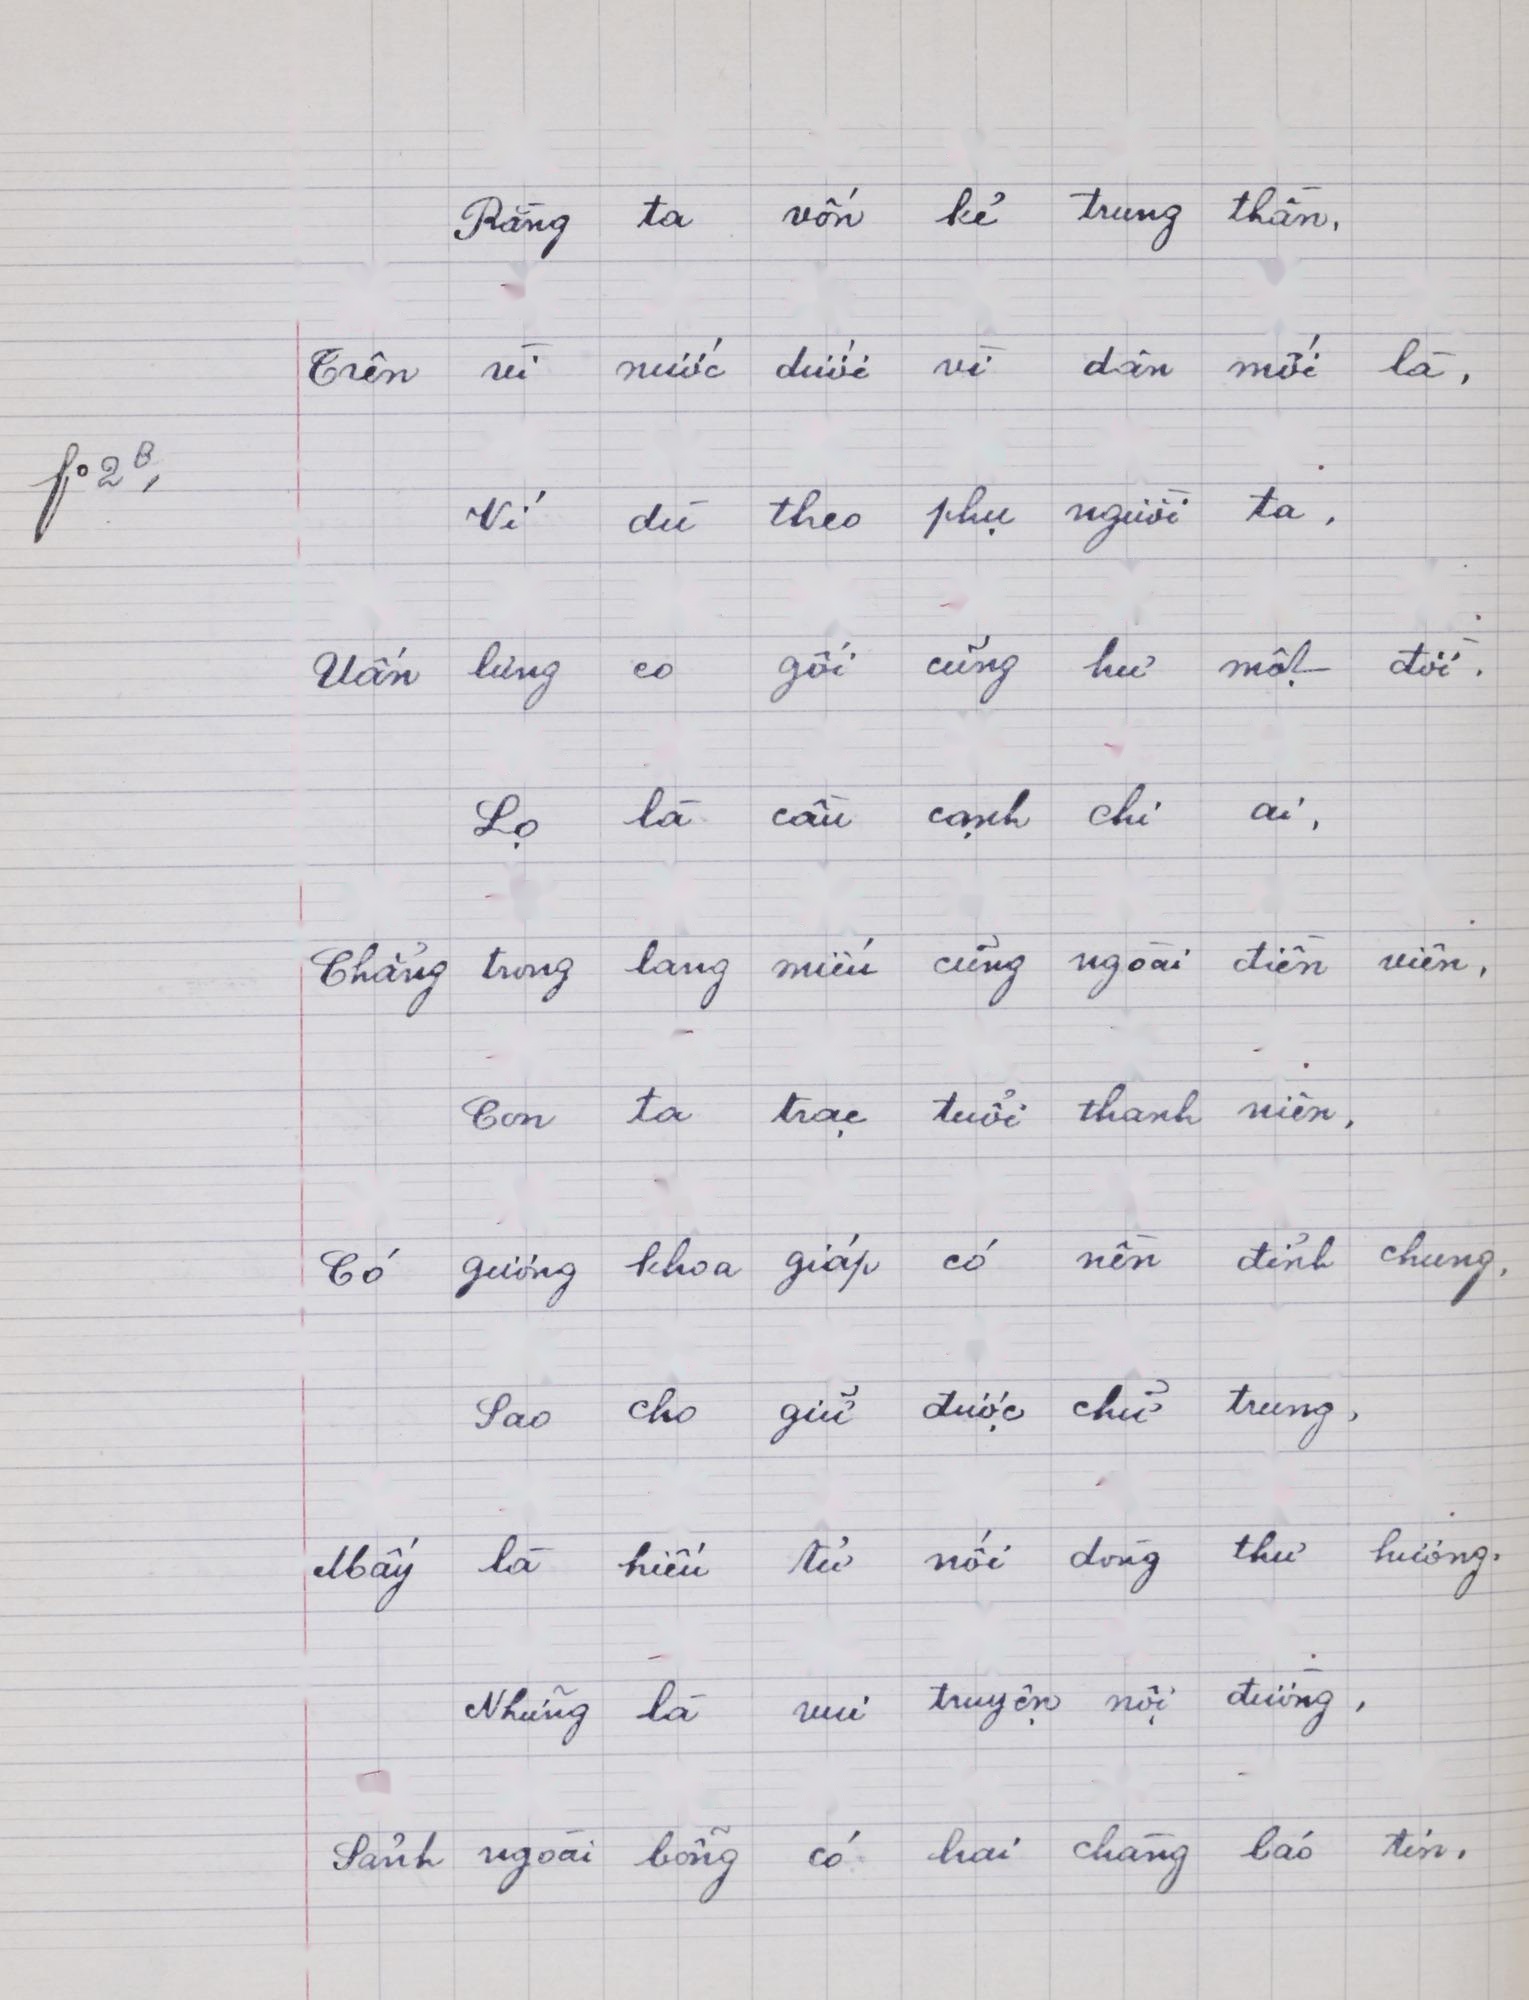 Rằng ta vốn kẻ trung thần,
Trên vì nước dưới vì dân mới là,
fº 2B,
Ví dù theo phụ người ta,
Uấn lưng co gối cũng hư một đời.
Lọ là cầu cạnh chi ai,
Chẳng trong lang miếu cũng ngoài điền viên,
Con ta trạc tuổi thanh niên,
Có gương khoa giáp có nền đỉnh chung,
Sao cho giữ được chữ trung,
Mấy là hiếu tử nối dòng thư hương.
Những là vui truyện nội đường,
Sảnh ngoài bỗng có hai chàng báo tin.